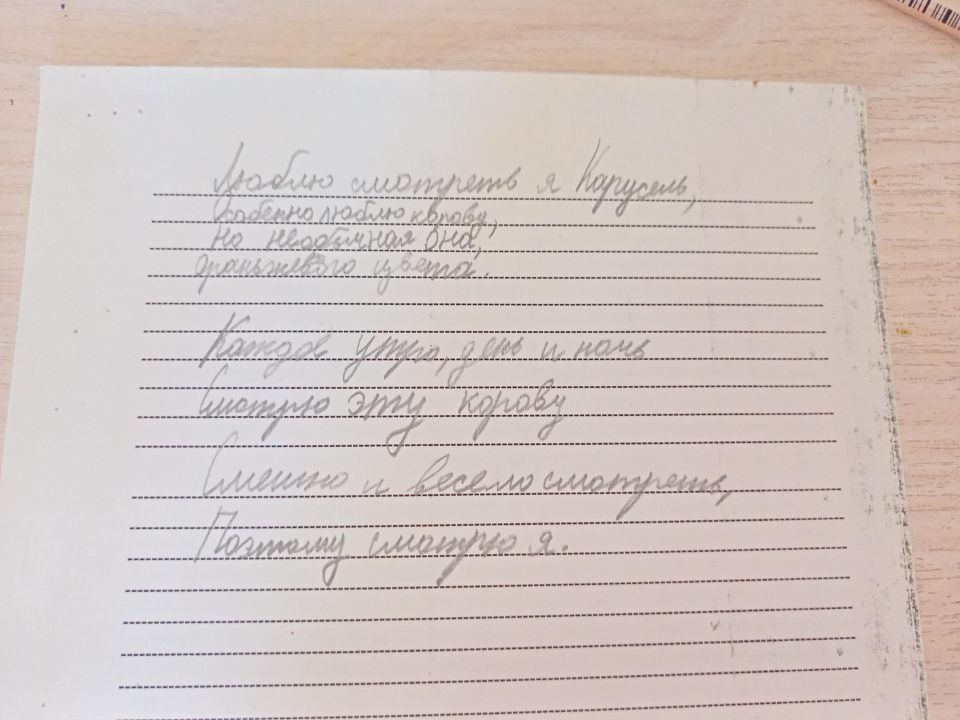 Люблю смотреть я Карусель,
Особенно люблю корову,
Но необычная она,
Оранжевого цвета.
Каждое утро, день и ночь
Смотрю эту корову
Смешно и весело смотреть,
Поэтому смотрю я.